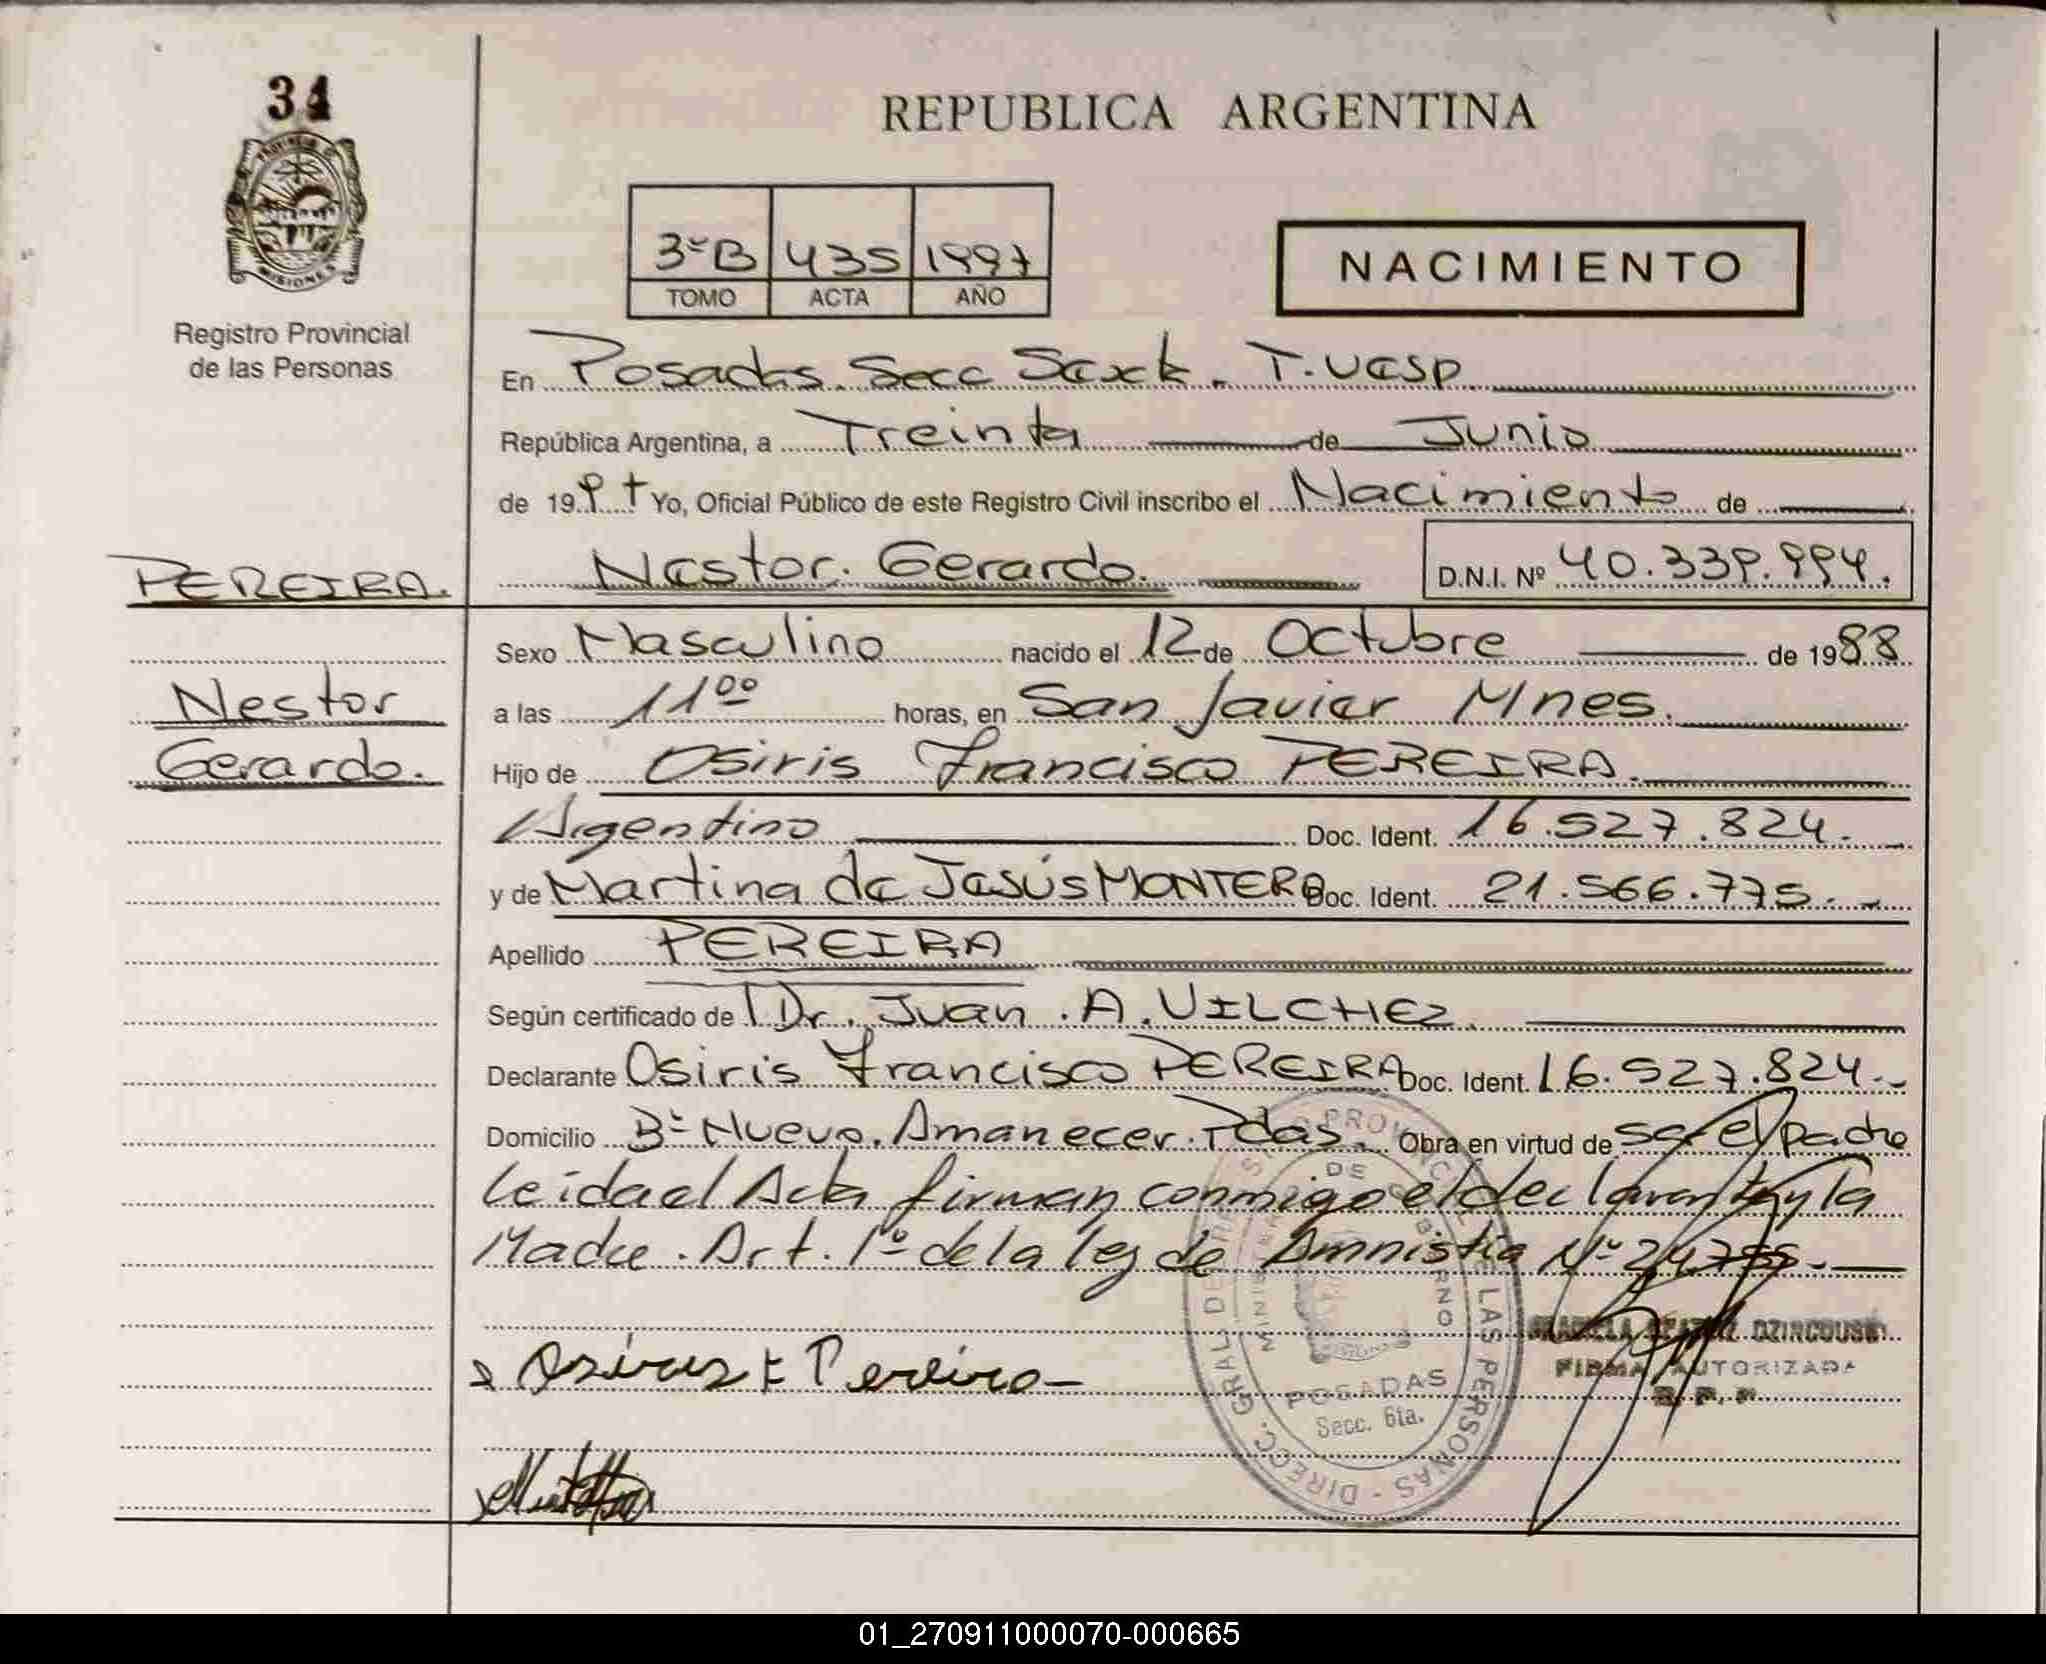 34
REPUBLICA ARGENTINA
PROVINCIA DE
MISIONES
Registro Provincial
de las Personas
3ºB 435 1997
TOMO ACTA AÑO
NACIMIENTO
En Posadas. Secc Sexta. T. Vesp.
República Argentina, a Treinta de Junio
de 1997 Yo, Oficial Público de este Registro Civil inscribo el Nacimiento de
PEREIRA. Nestor. Gerardo. D.N.I. Nº 40.339.994.
Sexo Masculino nacido el 12 de Octubre de 1988
Nestor a las 11ºº horas, en San Javier Mnes.
Gerardo. Hijo de Osiris Francisco PEREIRA.
Argentino Doc. Ident. 16.527.824.
y de Martina de Jesús MONTERO Doc. Ident. 21.566.775.
Apellido PEREIRA
Según certificado de Dr. Juan. A. VILCHEZ.
Declarante Osiris Francisco PEREIRA Doc. Ident. 16.527.824.
Domicilio Bº Nuevo. Amanecer. Pdas. Obra en virtud de ser el padre
Leida el Acta firman conmigo el declarante y la
Madre. Art. 1º de la ley de Amnistía Nº 24755.
DZINCOUSKI
FIRMA AUTORIZADA
R.P.P
Pereira
DIRECC. GRAL DEL REGISTRO PROVINCIAL DE LAS PERSONAS
MINISTERIO DE GOBIERNO
POSADAS
Secc. 6ta.
01_270911000070-000665